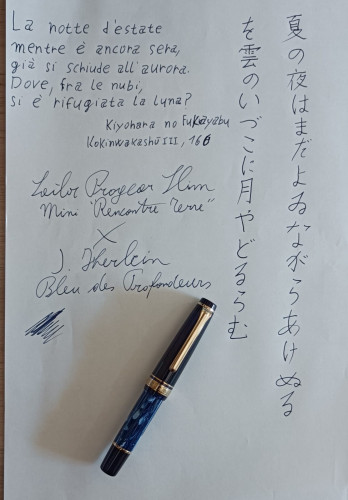 La notte d'estate
mentre è ancora sera,
già si schiude all'aurora.
Dove, fra le nubi,
si è rifugiata la luna?
Kiyohara no Fukayabu
Kokinwakashū III, 166
Sailor Progear Slim
Mini "Rencontre Terre"
X
J. Herbin
Bleu des Profondeurs
夏の夜はまだよゐながらあけぬる
を雲のいづこに月やどるらむ